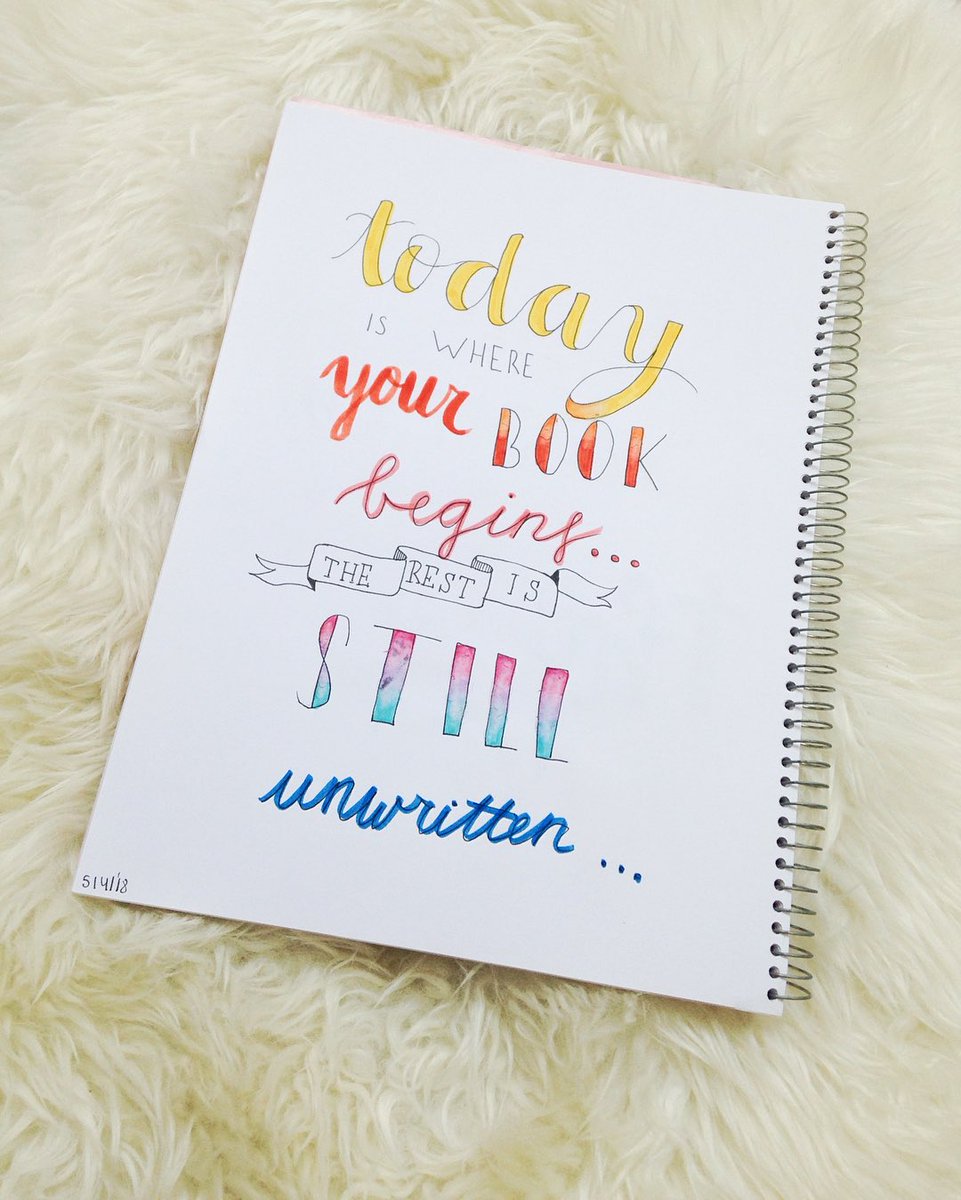 today
IS WHERE
your BOOK
begins...
THE REST IS
STILL
unwritten...
5/4/18